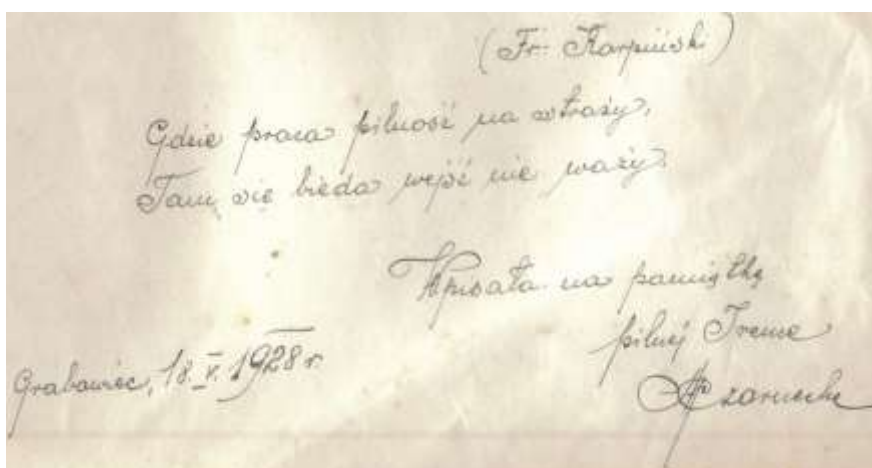 (Fr. Karpiński)
Gdzie praca pilność na straży,
Tam się bieda wejść nie waży.
Wpisała na pamiątkę
pilnej Irence
Grabowiec, 18. V. 1928 r
Czarnecka